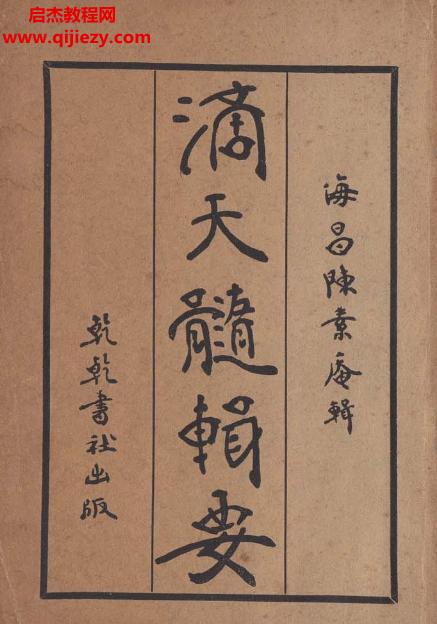 启杰教程网
www.qijiezy.com
海昌陳素庵輯
滴天髓輯要
乾乾書社出版